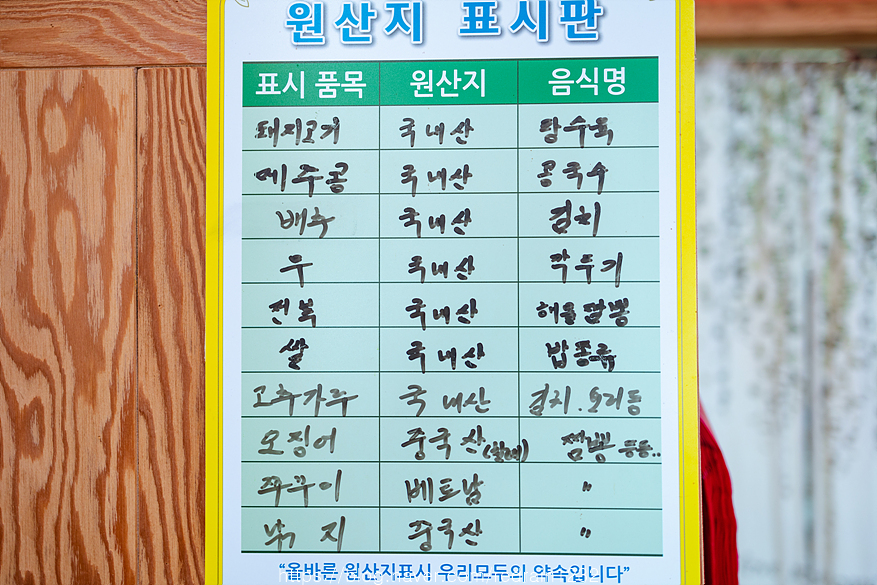 원산지 표시판
표시 품목 원산지 음식명
돼지고기 국내산 탕수육
메주콩 국내산 콩국수
배추 국내산 김치
무 국내산 깍두기
전복 국내산 해물짬뽕
쌀 국내산 밥종류
고추가루 국내산 김치.요리등
오징어 중국산(칠레) 짬뽕 등등..
쭈꾸미 베트남 〃
낙지 중국산 〃
"올바른 원산지표시 우리모두의 약속입니다"